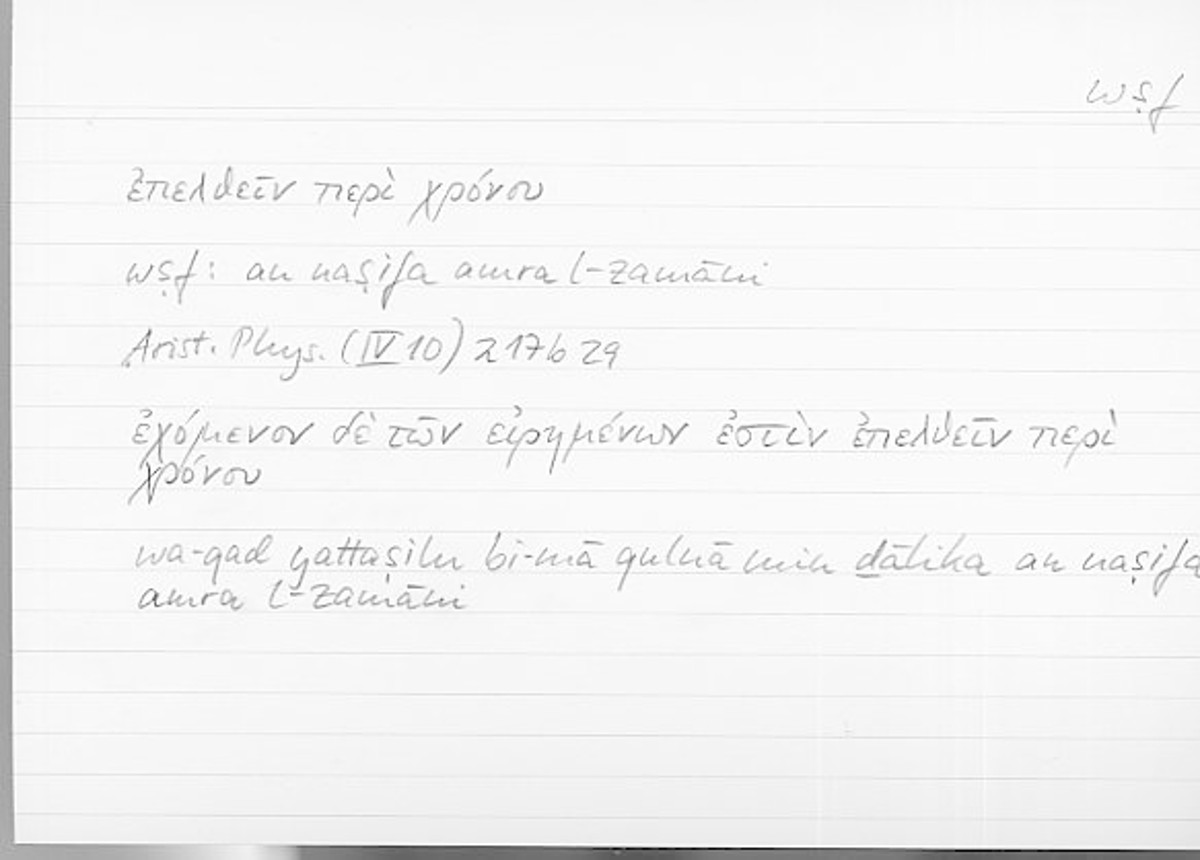 wṣf
ἐπελθεῖν περὶ χρόνου
wṣf: an naṣifa amra l-zamāni
Arist. Phys. (IV 10) 217b 29
ἐχόμενον δὲ τῶν εἰρημένων ἐστὶν ἐπελθεῖν περὶ
χρόνου
wa-qad yattaṣilu bi-mā qulnā min ḏālika an naṣifa
amra l-zamāni